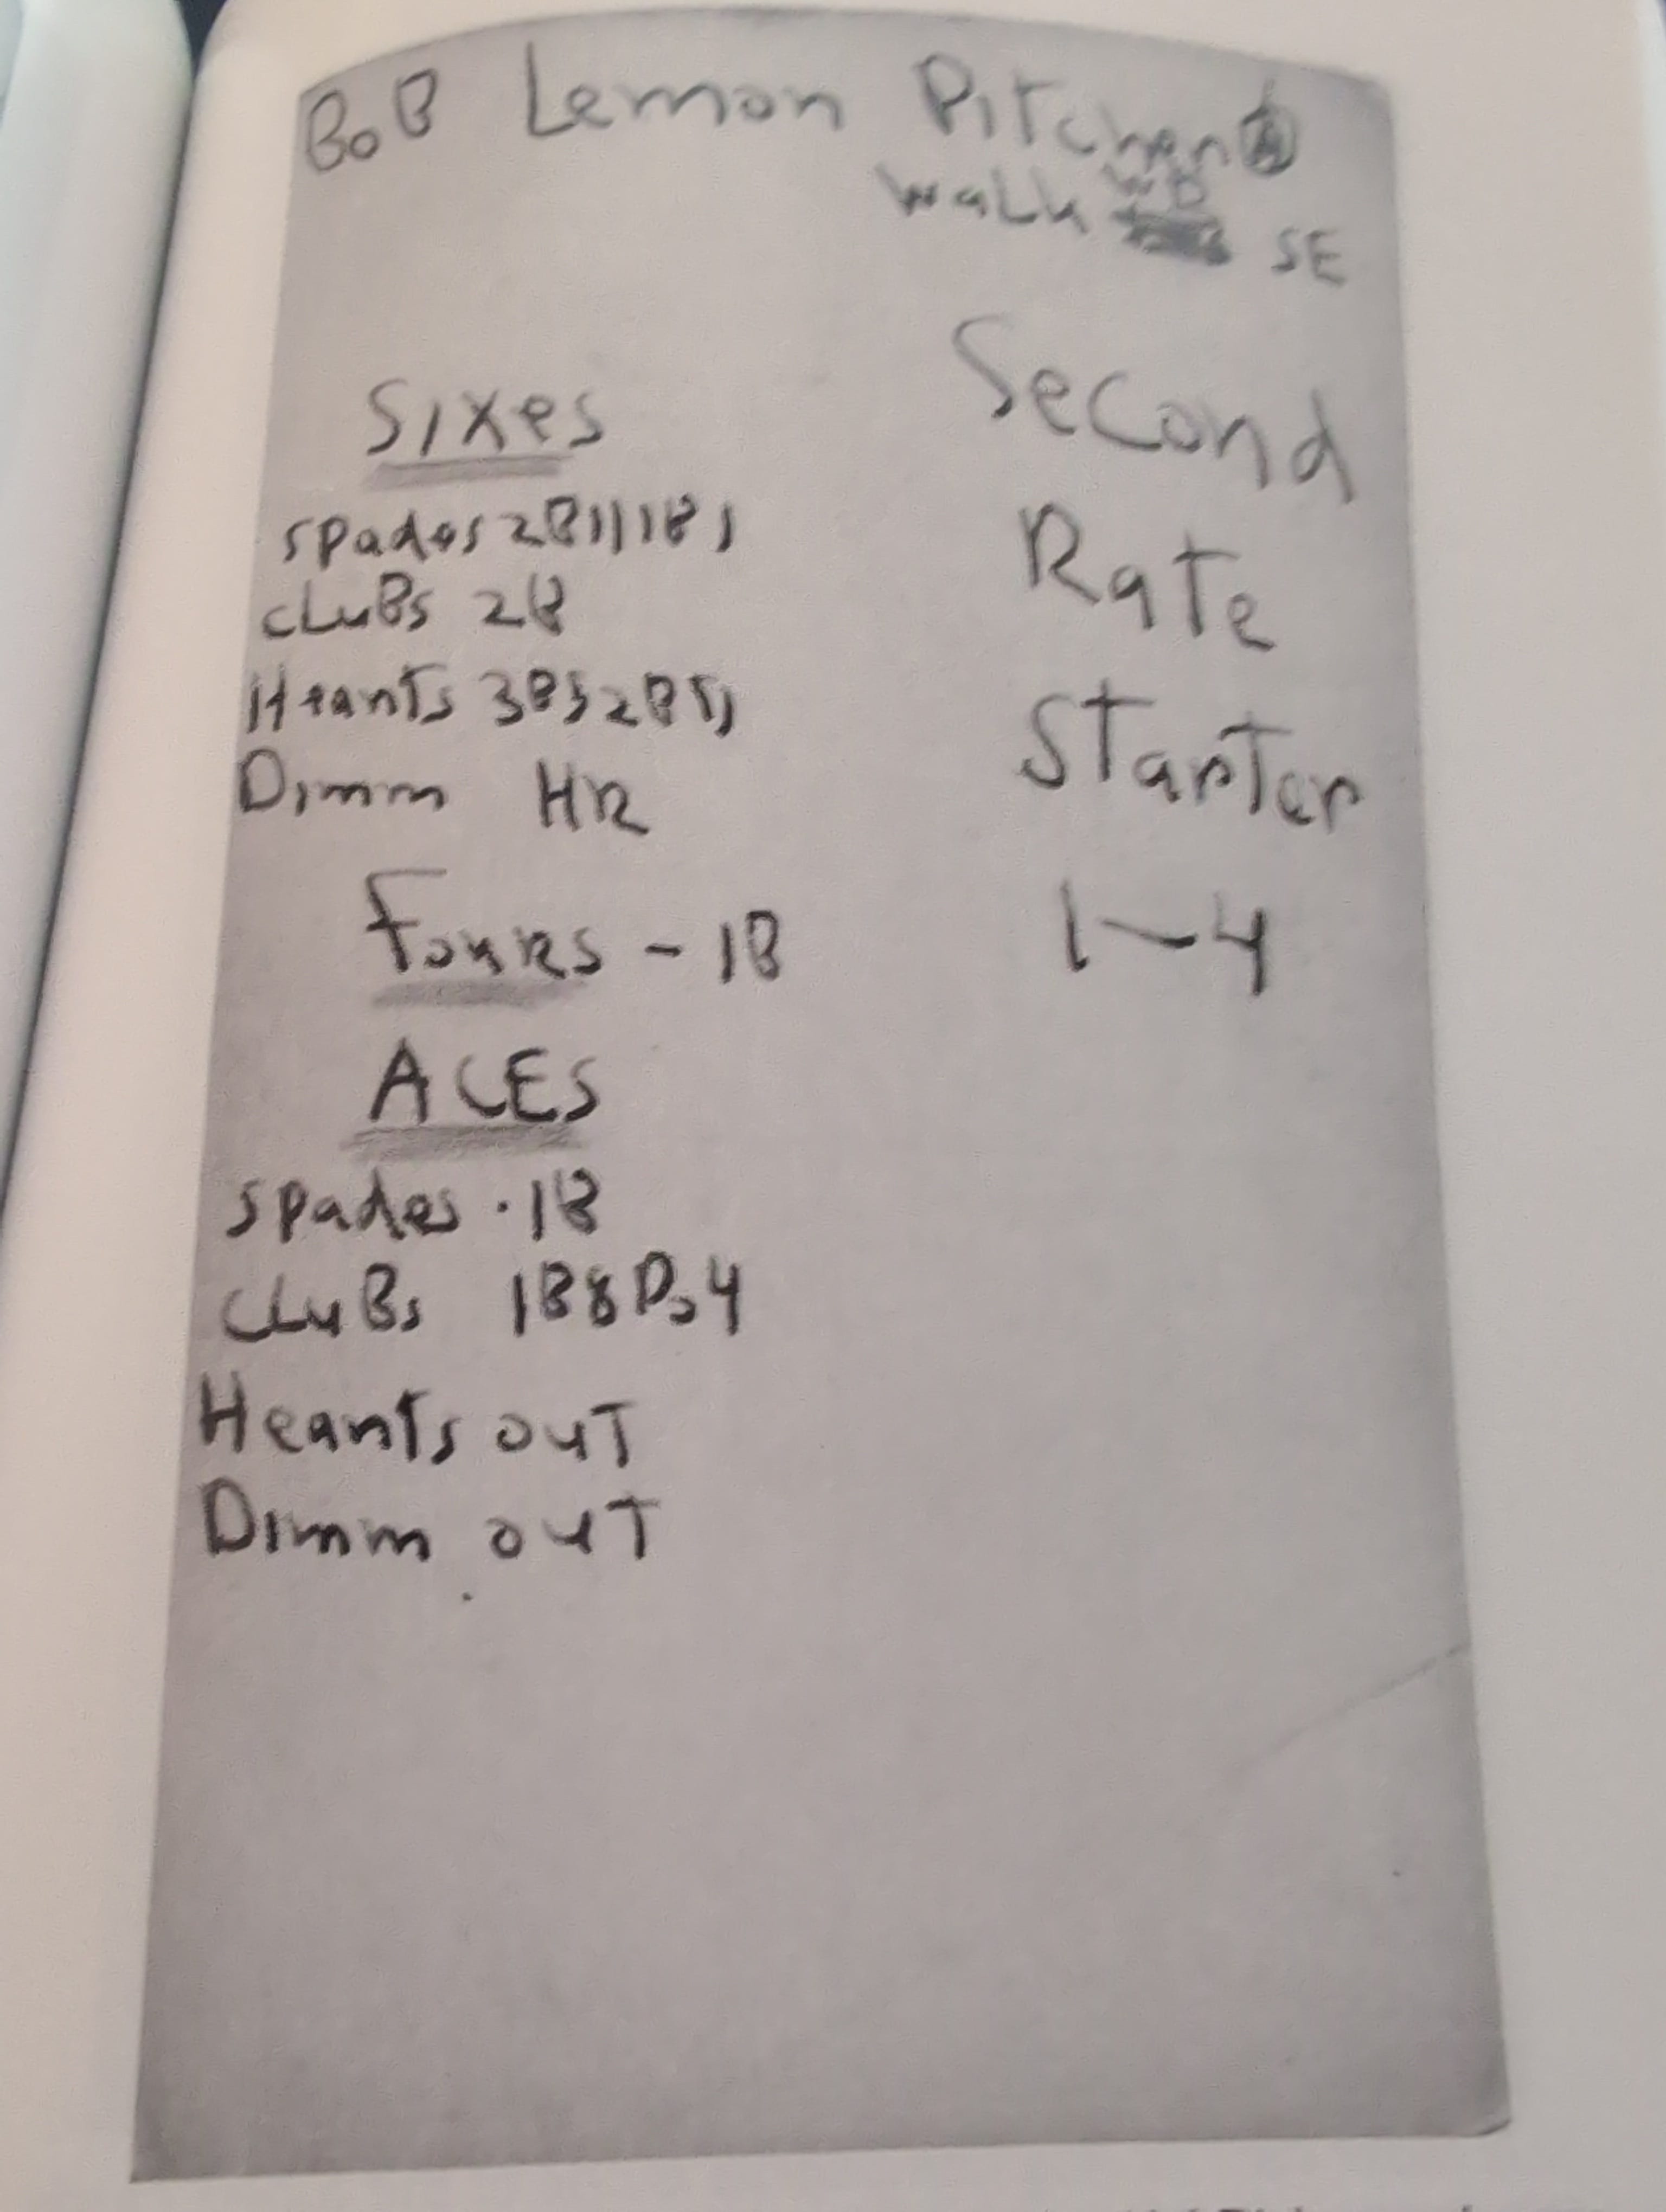 BoB Lemon Pitcher
Walk WB SE
Sixes
Spades
CLuBs 2B
Hearts
Dimm HR
Fours - 1B
ACES
Spades . 1B
CLuBs
Hearts ouT
Dimm ouT
Second
RaTe
STarTer
1-4